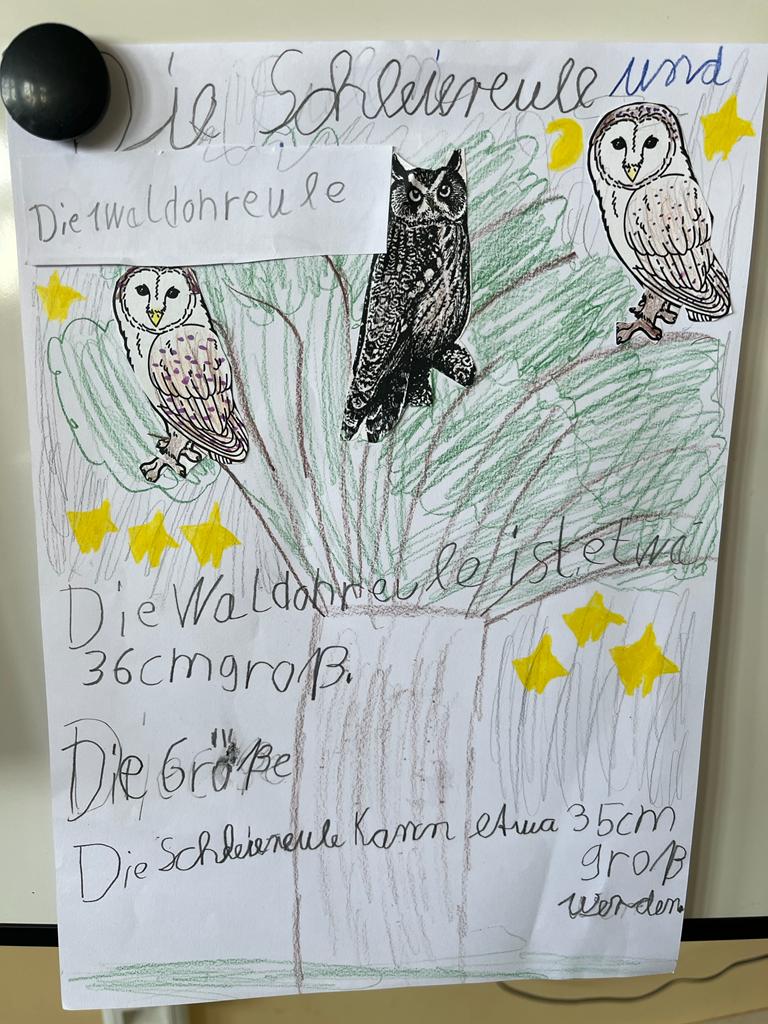 Die Schleiereule und
Die Waldohreule
Die Waldohreule ist etwa
36cm groß.
Die Größe
Die Schleiereule Kann etwa 35cm
groß
werden.